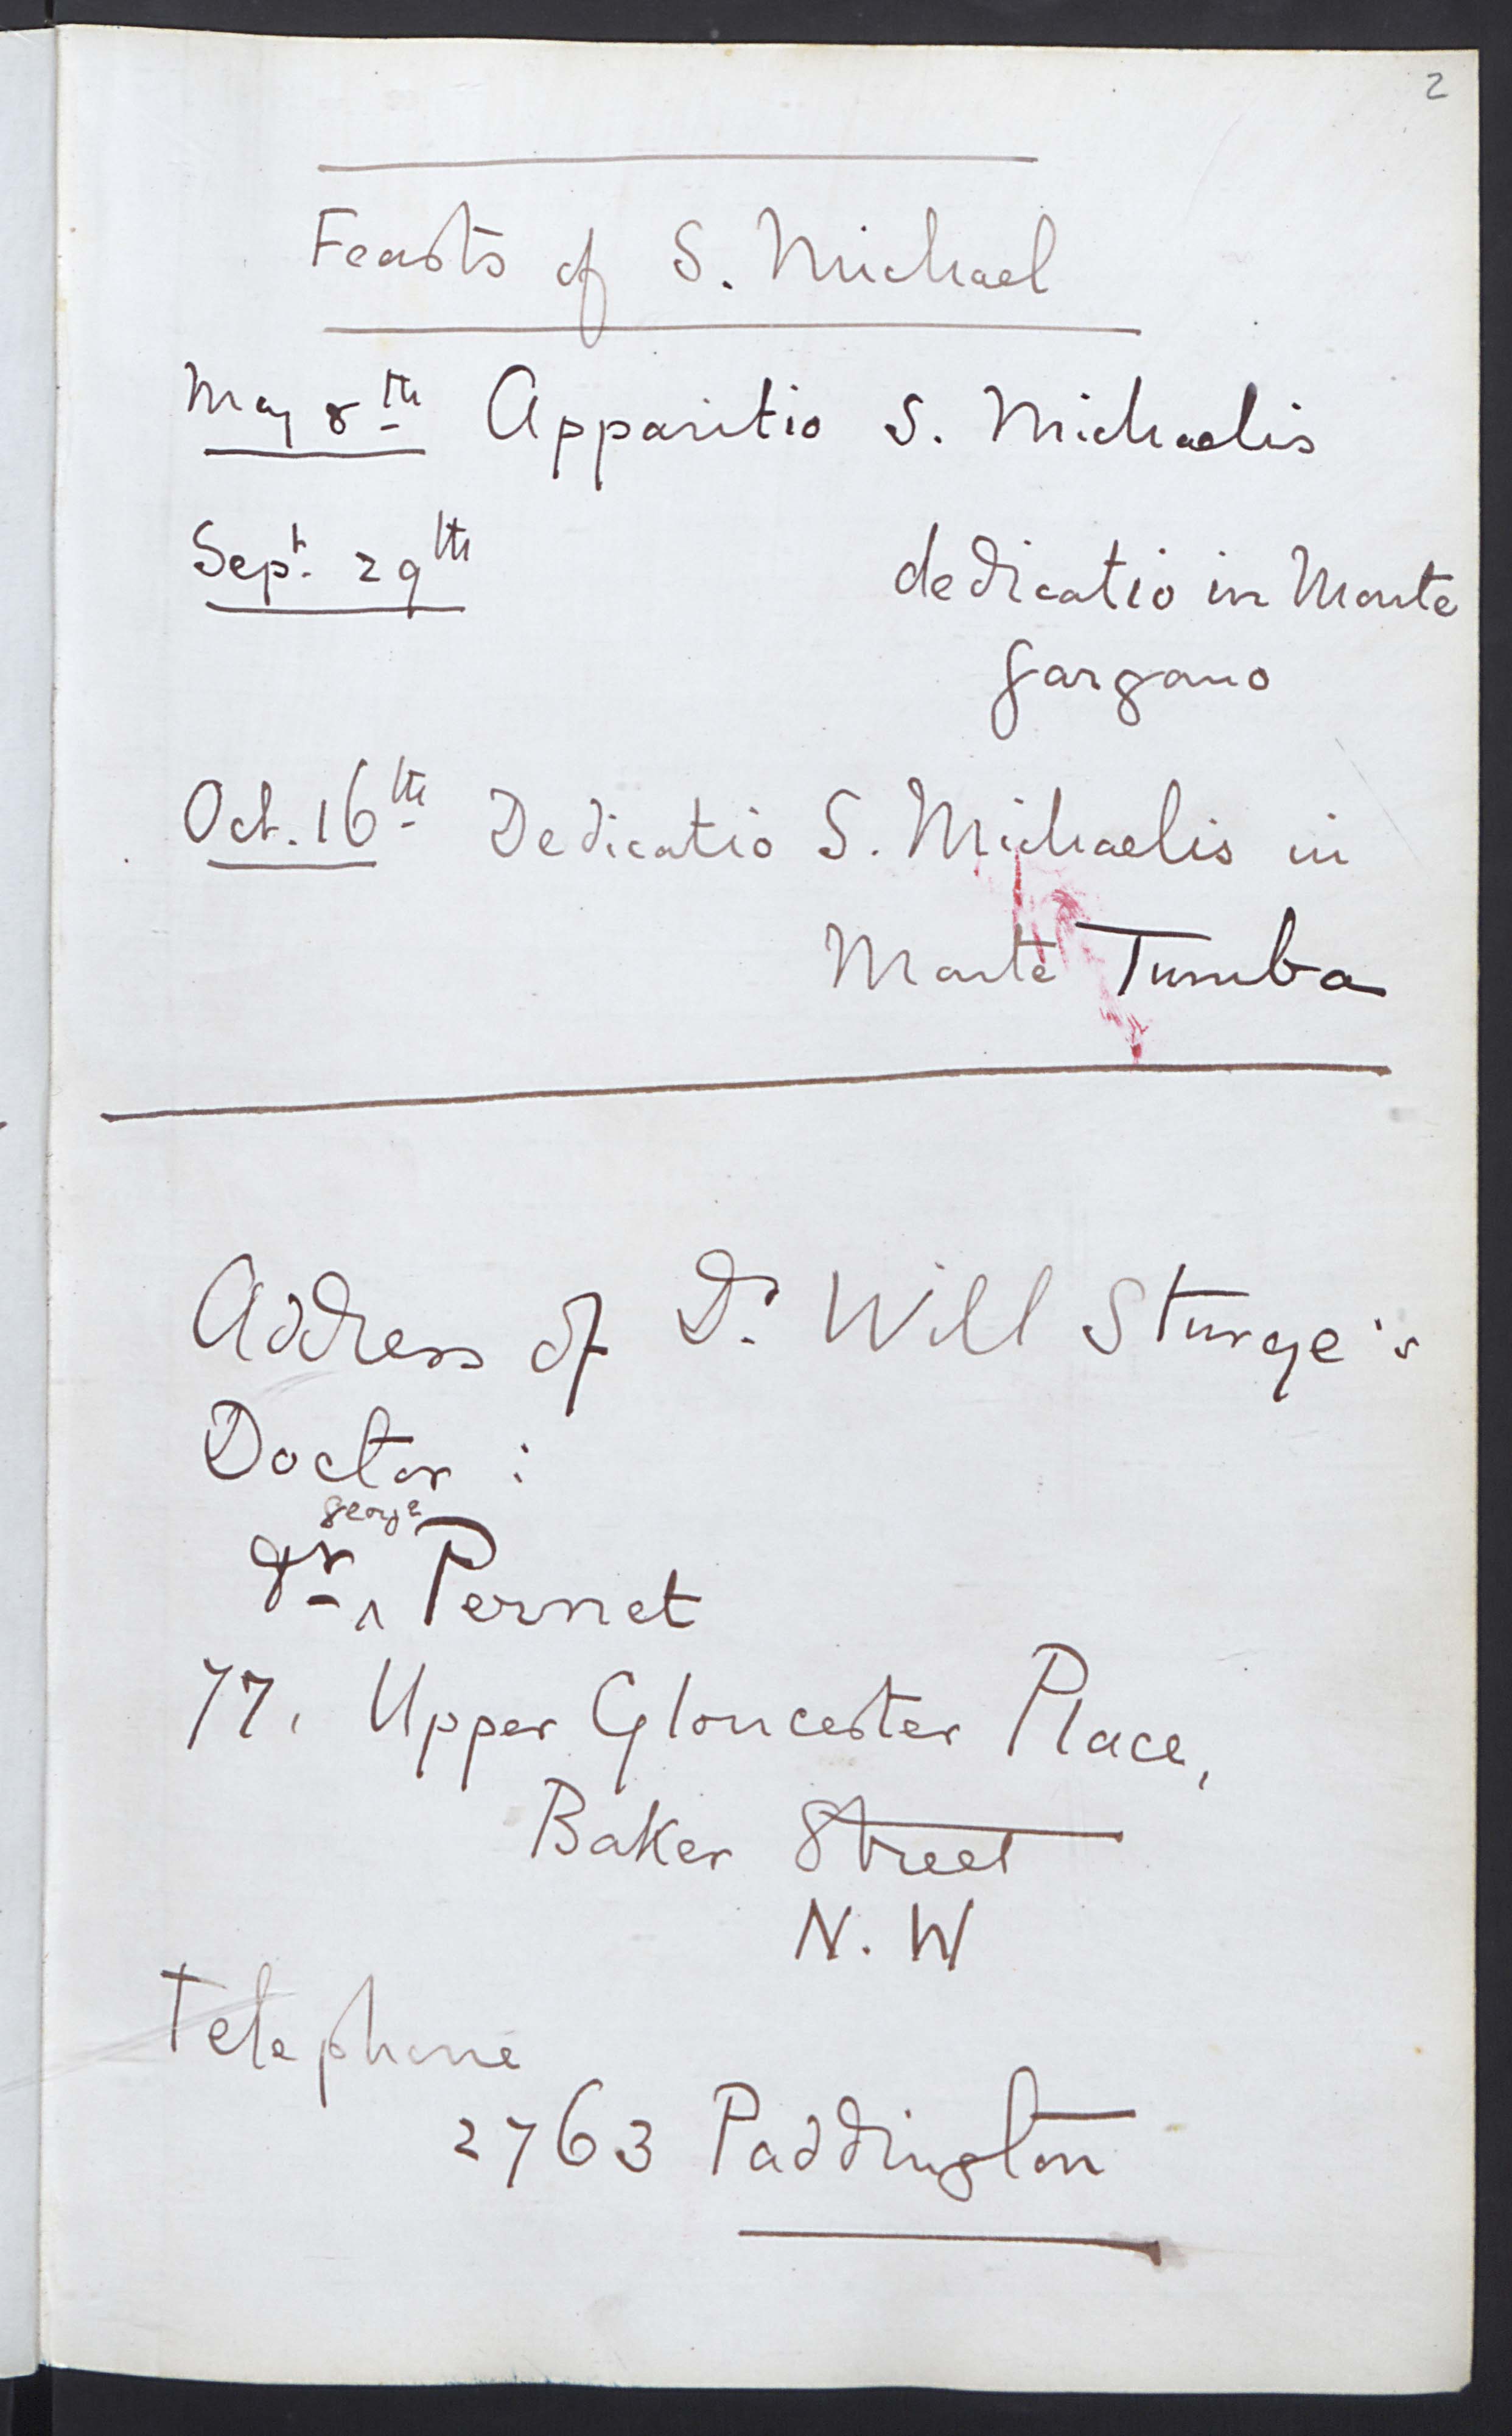 2
Feasts of S. Michael
May 8th Apparitio S. Michaelis
Sept. 29th dedicatio in Monte
Gargano
Oct. 16th Dedicatio S. Michaelis in
Monte Tumba
Address of Dr. Will Sturge's
Doctor :
george
Dr ^ Pernet
77, Upper Gloucester Place,
Baker Street
N. W
Telephone
2763 Paddington